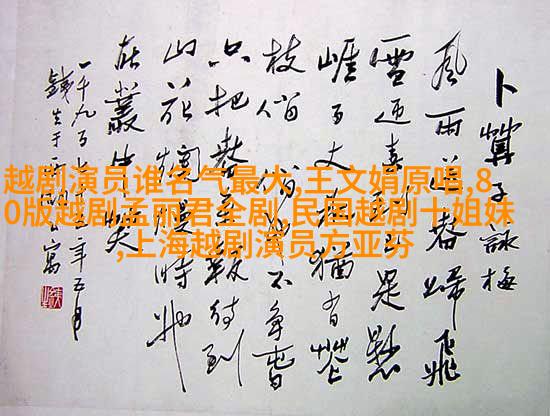 越剧演员谁名气最大,王文娟原唱,8
0版越剧孟丽君全剧,民国越剧十姐妹
,上海越剧演员方亚芬
卜算子詠梅
風雨送春歸飛
雪迎春到已是懸
崖百丈冰猶有花
枝俏俏也不争春
只把春來報待到
山花爛漫時她
在叢中笑
一千九百七年五月